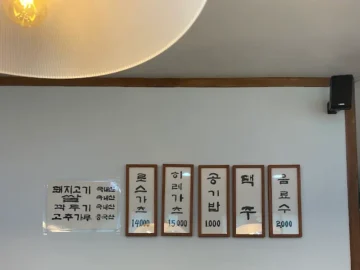 돼지고기 국내산
쌀 국내산
깍두기 국내산
고추가루 중국산
로스가츠 14,000
히레가츠 15,000
공기밥 1,000
맥주
음료수 2,000